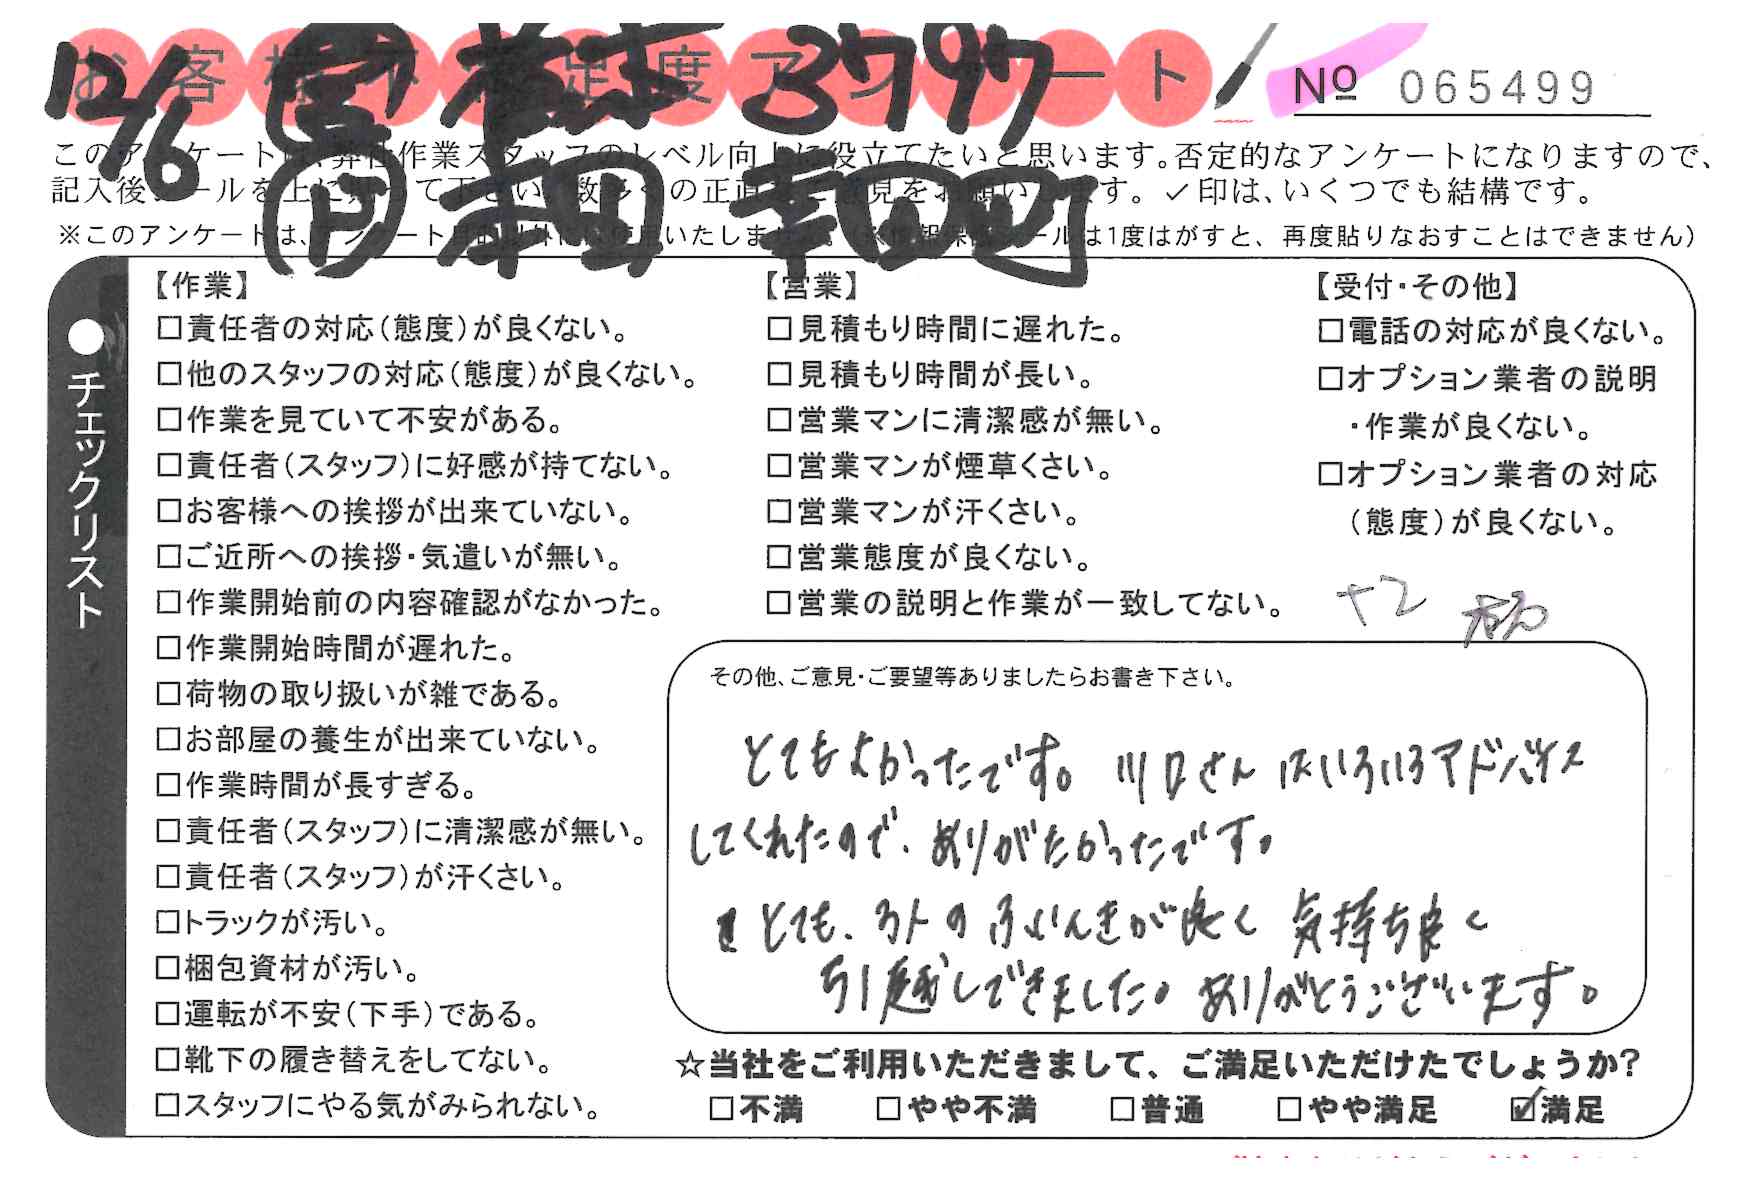 お客様不満足度アンケート
No 065499
12/6
3797
幸田町
このアンケートは、弊社作業スタッフのレベル向上に役立てたいと思います。否定的なアンケートになりますので、
記入後シールを上に貼って下さい。数多くの正直なご意見をお願いします。✓印は、いくつでも結構です。
※このアンケートは、アンケート目的以外には使用いたしません。(※情報保護シールは1度はがすと、再度貼りなおすことはできません)
●チェックリスト
【作業】
□責任者の対応(態度)が良くない。
□他のスタッフの対応(態度)が良くない。
□作業を見ていて不安がある。
□責任者(スタッフ)に好感が持てない。
□お客様への挨拶が出来ていない。
□ご近所への挨拶・気遣いが無い。
□作業開始前の内容確認がなかった。
□作業開始時間が遅れた。
□荷物の取り扱いが雑である。
□お部屋の養生が出来ていない。
□作業時間が長すぎる。
□責任者(スタッフ)に清潔感が無い。
□責任者(スタッフ)が汗くさい。
□トラックが汚い。
□梱包資材が汚い。
□運転が不安(下手)である。
□靴下の履き替えをしてない。
□スタッフにやる気がみられない。
【営業】
□見積もり時間に遅れた。
□見積もり時間が長い。
□営業マンに清潔感が無い。
□営業マンが煙草くさい。
□営業マンが汗くさい。
□営業態度が良くない。
□営業の説明と作業が一致してない。
【受付・その他】
□電話の対応が良くない。
□オプション業者の説明
・作業が良くない。
□オプション業者の対応
(態度)が良くない。
+2
その他、ご意見・ご要望等ありましたらお書き下さい。
とてもよかったです。川口さんはいろいろアドバイス
してくれたので、ありがたかったです。
とても、3人のふいんきが良く気持ち良く
引越しできました。ありがとうございます。
☆当社をご利用いただきまして、ご満足いただけたでしょうか?
□不満 □やや不満 □普通 □やや満足 ☑満足